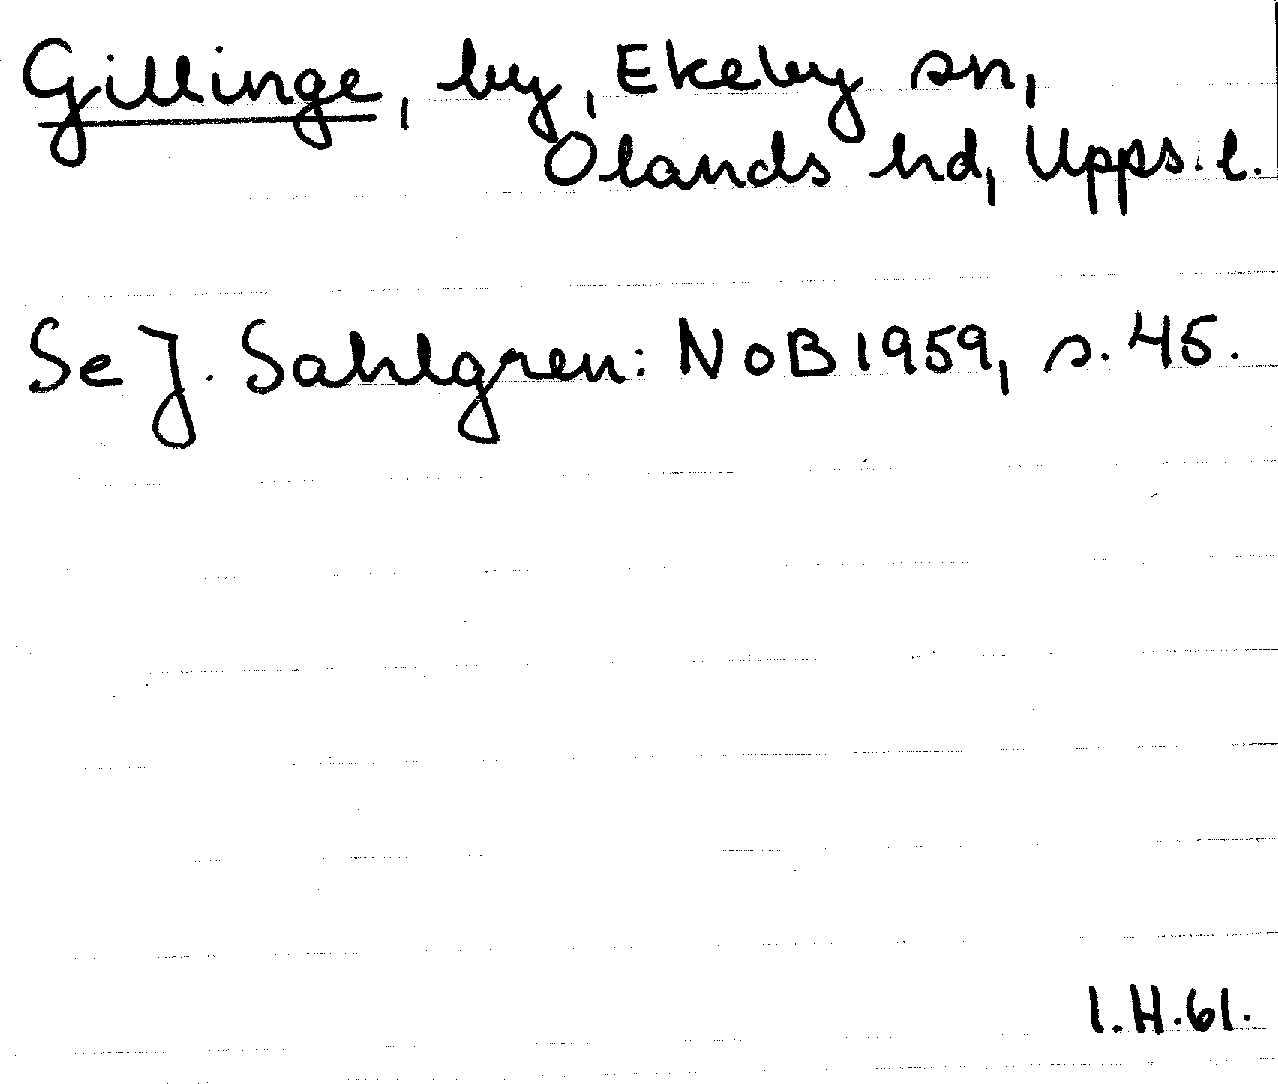 Gillinge, by, Ekeby sn,
Olands hd, Upps. l.
Se J. Sahlgren: NoB 1959, s. 45.
I.H.61.